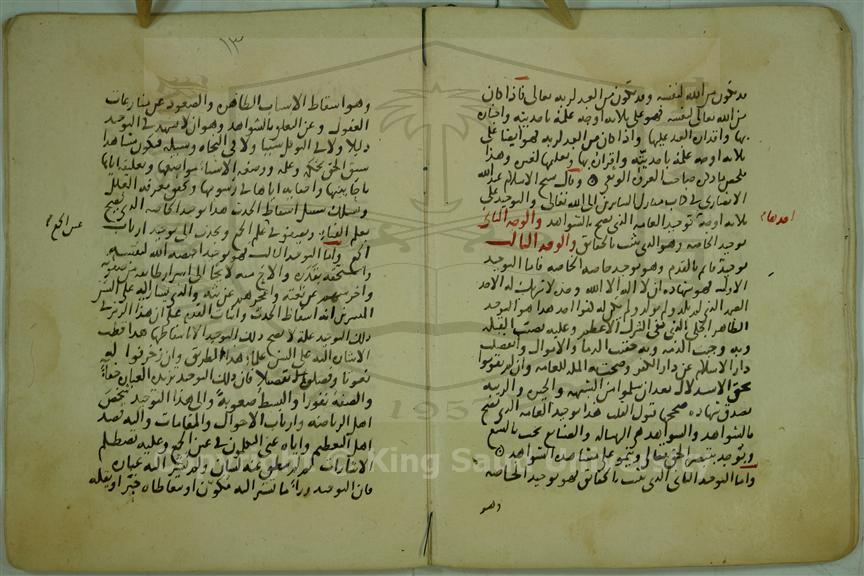 قد تكون من الله لنفسه وقد تكون من العبد لربه تعالى فاذا كان
من الله تعالى لنفسه فهو على ثلاثة اوجه علمه باحديته واخباره
بها واقدار العبد عليها واذا كان من العبد لربه فهو ايضا على
ثلاثة اوجه علمه باحديته واقراره بها وتعليمها لغيره وهذا
وقال شيخ الاسلام عبد الله
الانصاري في كتاب منازل السائرين الى الله تعالى والتوحيد على
ثلاثة اوجه توحيد العامة الذي يصح بالشواهد والوجه الثاني
احدها
توحيد الخاصة وهو الذي يثبت بالحقائق والوجه الثالث
توحيد قائم بالقدم وهو توحيد خاصة الخاصة فاما التوحيد
الاول فهو شهادة ان لا اله الا الله وحده لا شريك له الاحد
الصمد الذي لم يلد ولم يولد ولم يكن له كفوا احد هذا هو التوحيد
الظاهر الجلي الذي نفى الشرك الاعظم وعليه نصبت القبلة
وبه وجبت الذمة وبه حقنت الدما والاموال وانفصلت
دار الاسلام عن دار الكفر وصحت به الملة للعامة وان لم يقوموا
بحق الاستدلال بعد ان سلموا من الشبهة والحيرة والريبة
بصدق شهادة صححها قبول القلب هذا توحيد العامة الذي يصح
بالشواهد والشواهد هي الرسالة والصنائع تجب بالسمع
وتوجد بتبصير الحق تعالى وتنمو على مشاهدة الشواهد
واما التوحيد الثاني الذي يثبت بالحقائق فهو توحيد الخاصة
وهو
١٣
وهو اسقاط الاسباب الظاهرة والصعود عن منازعات
العقول وعن التعلق بالشواهد وهو ان لا تشهد في التوحيد
دليلا ولا في التوكل سببا ولا في النجاة وسيلة فتكون مشاهدا
سبق الحق بحكمه وعلمه ووضعه الاشيا مواضعها وتعليقه اياها
باحايينها واخفايه اياها في رسومها وتحقق معرفة العلل
وتسلك سبيل اسقاط الحدث هذا توحيد الخاصة الذي يصح
بعلم الفنا ويصفو في علم الجمع ويجذب الى توحيد ارباب
عين الجمع
الجمع واما التوحيد الثالث فهو توحيد اختصه الله لنفسه
واستحقه بقدره والاح منه لايحا الى اسرار طايفة من صفوته
واخرسهم عن نعته واعجزهم عن بثه والذي يشار اليه على السن
المشيرين انه اسقاط الحدث واثبات القدم على ان هذا الرمز في
ذلك التوحيد علة لا يصح ذلك التوحيد الا باسقاطها هذا قطب
الاشارة اليه على السن علما هذا الطريق وان زخرفوا له
نعوتا وفصلوه تفصيلا فان ذلك التوحيد تزيده العبارة خفا
والصفة نفورا والبسط صعوبة والى هذا التوحيد شخص
اهل الرياضة وارباب الاحوال والمقامات واليه قصد
اهل التعظيم واياه عنى المتكلمون في عين الجمع وعليه تصطلم
الاشارات ثم لم ينطق عنه لسان ولم تشر اليه عبارة
فان التوحيد ورا ما يشير اليه مكون او يتعاطاه حين او يقله